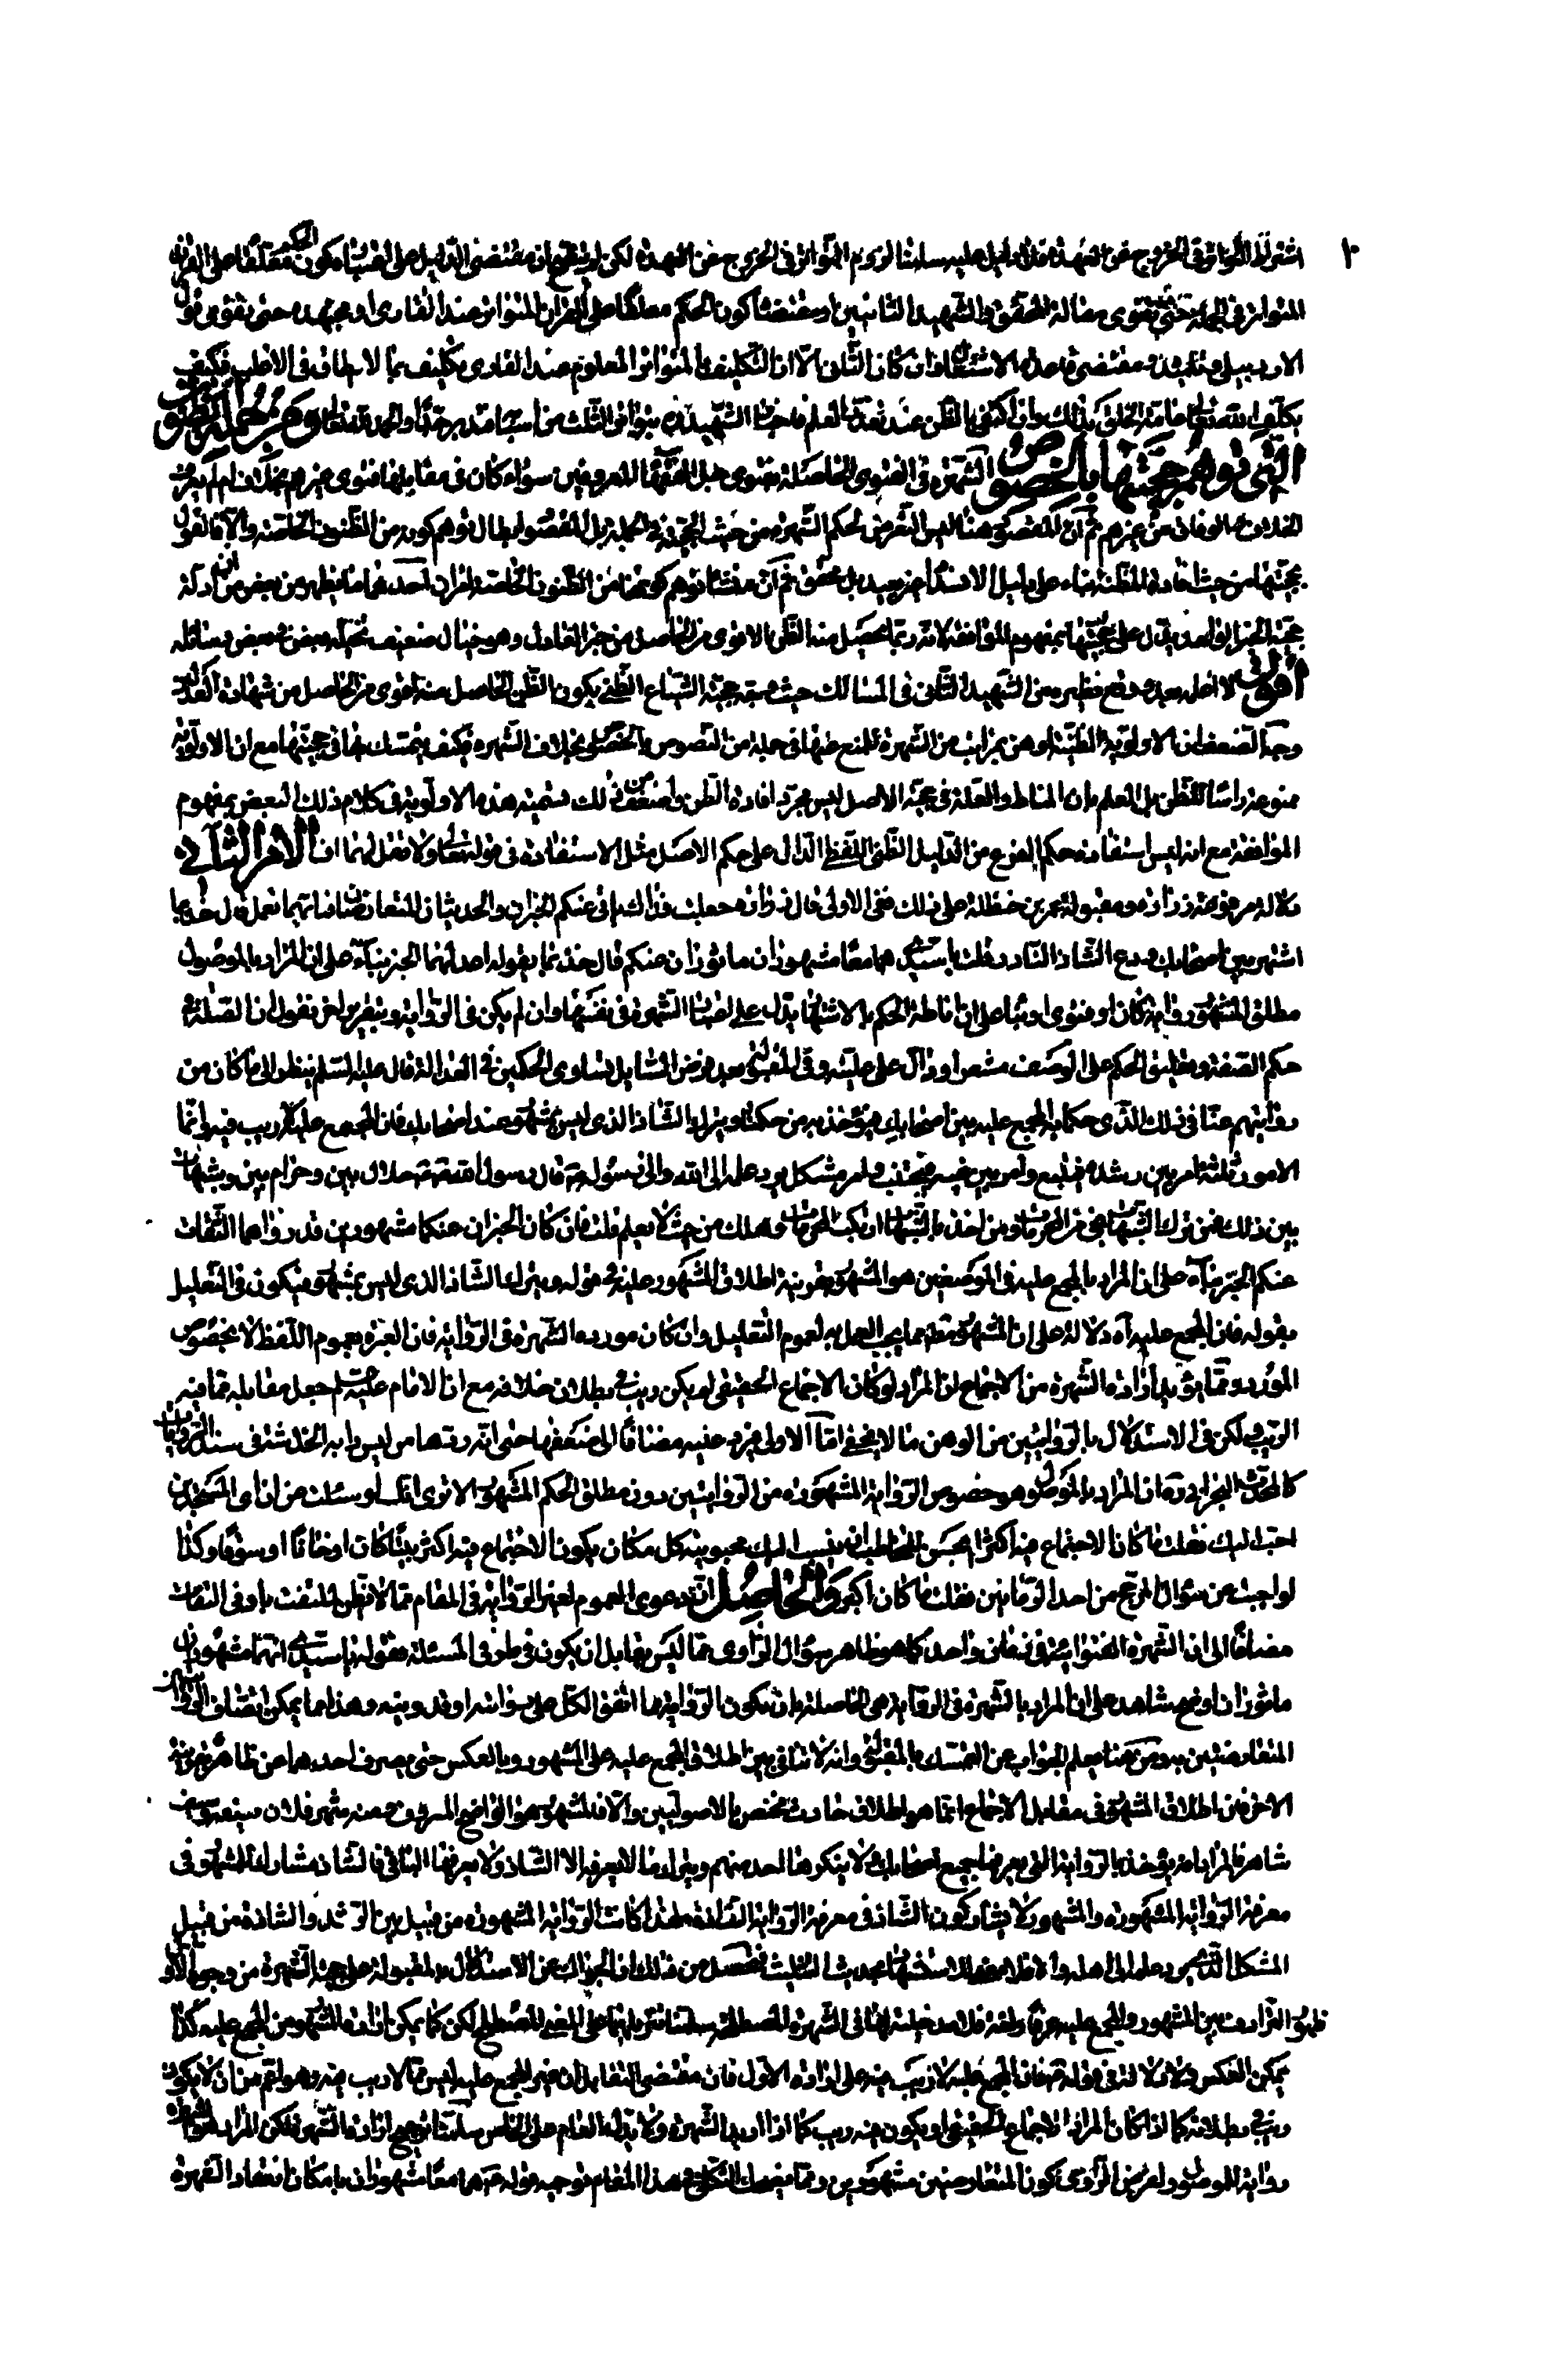 اشتراط التواتر فى الخروج عن العهدة فلا دليل عليه سلمنا لزوم التواتر فى الخروج عن العهدة لكن مقتضى الدليل على كون الحكم معلقا على القران
المتواتر فى الجملة حتى يقوى مقالة المحقق والشهيد الثانيين او مقتضاه كون الحكم معلقا على القران المتواتر عند القارى او مجتهده حتى يقوى قول
الاردبيلى و مقتضى قاعدة الاشتغال وان كان الثانى الا ان التكليف بالمتواتر المعلوم عند القارى تكليف بما لا يطاق فى الاغلب فكيف
يكلف الله تعالى عامة الخلق بذلك وان اكتفى بالظن عند تعذر العلم فاخبار الشهيد بتواتر الثلث من اسباب جدا والحمد لله تعالى ومن جملة الظنون
التى توهم حجيتها بالخصوص الشهرة فى الفتوى الحاصلة بفتوى جل الفقهاء المعروفين سواء كان فى مقابلها فتوى غيرهم بخلاف ام لم يعرف
الخلاف و الوفاق من غيرهم ثم ان المقصود هنا ليس التعرض لحكم الشهرة من حيث الحجية فى الجملة بل المقصود ابطال توهم كونه من الظنون الخاصة والا فالقول
بحجيتها من حيث افادة المظنة بناء على دليل الانسداد غير بعيد بل محقق ثم ان منشأ توهم كونها من الظنون الخاصة امران احدهما ما يظهر من بعض من ان ادلة
حجية الخبر الواحد يدل على حجيتها بمفهوم الموافقة لانه ربما يحصل منه الظن الاقوى من الحاصل من خبر العادل وهو خيال ضعيف تخيله بعض فى بعض رسائله
اقول لا لعله بعد وقع نظيره من الشهيد الثانى فى المسالك حيث وجه حجية الشياع الظنى بكون الظن الحاصل منه اقوى من الحاصل من شهادة العدلين
وجه الضعف ان الاولوية الظنية اوهن بمراتب من الشهرة للمنع عنها فى جملة من النصوص بالخصوص بخلاف الشهرة فكيف يتمسك بها فى حجيتها مع ان الاولوية
ممنوعة راسا للظن بل العلم بان المناط والعلة فى حجية الاصل ليس مجرد افادة الظن واضعف من ذلك تسمية هذه الاولوية فى كلام ذلك البعض بمفهوم
الموافقة مع انه ليس استفادة حكم الفرع من الدليل الظنى اللفظى الدال على حكم الاصل مثل الاستفادة فى قوله تعالى ولا تقل لهما اف الامر الثانى
دلالة مرفوعة زرارة ومقبولة عمر بن حنظلة على ذلك ففى الاولى قال زرارة جعلت فداك ياتى عنكم الخبران والحديثان المتعارضان فبايهما نعمل قال خذ بما
اشتهر بين اصحابك ودع الشاذ النادر قلت يا سيدى هما معا مشهوران ماثوران عنكم قال خذ بما يقوله اعدلهما الخبر بناء على ان المراد بالموصول
مطلق المشهور رواية كان او فتوى او بناء على ان اناطة الحكم بالاشتهار يدل على اعتبار الشهرة فى نفسها وان لم يكن فى الرواية وبتقرير اخر نقول ان الصلة فى
حكم الصفة و تعليق الحكم على الوصف مشعر او دال على عليته وفى المقبولة بعد فرض السائل تساوى الحكمين فى العدالة قال عليه السلم ينظر الى ما كان من
روايتهم عنا فى ذلك الذى حكما به المجمع عليه بين اصحابك فيؤخذ به من حكمنا ويترك الشاذ الذى ليس بمشهور عند اصحابك فان المجمع عليه لا ريب فيه وانما
الامور ثلثة امر بين رشده فيتبع وامر بين غيه فيجتنب وامر مشكل يرد علمه الى الله والى رسوله قال رسول الله حلال بين وحرام بين وشبهات
بين ذلك فمن ترك الشبهات نجى من المحرمات ومن اخذ بالشبهات ارتكب المحرمات وهلك من حيث لا يعلم قلت فان كان الخبران عنكما مشهورين قد رواهما الثقات
عنكم الخبر بناء على ان المراد بالمجمع عليه فى الموضعين هو المشهور بقرينة اطلاق المشهور عليه فى قوله ويترك الشاذ الذى ليس بمشهور فيكون فى التعليل
بقوله فان المجمع عليه اه دلالة على ان المشهور مطلقا مما يجب العمل به لعموم التعليل وان كان مورده الشهرة فى الرواية فان العبرة بعموم اللفظ لا بخصوص
المورد ومما يؤيد ارادة الشهرة من الاجماع ان المراد لو كان الاجماع الحقيقى لم يكن ريب فى بطلان خلافه مع ان الامام عليه السلم جعل مقابله مما فيه
الريب ولكن فى الاستدلال بالروايتين من الوهن ما لا يخفى اما الاولى فيرد عليه مضافا الى ضعفها حتى انه ردها من ليس دابه الخدشة فى سند الروايات
كالمحدث البحرانى ره ان المراد بالموصول هو خصوص الرواية المشهورة من الروايتين دون مطلق الحكم المشهور الا ترى انك لو سئلت عن ان اى المسجدين
احب اليك فقلت ما كان الاجتماع فيه اكثر لم يحسن للمخاطب ان ينسب اليك محبوبية كل مكان يكون الاجتماع فيه اكثر بيتا كان او خانا او سوقا وكذا
لو اجبت عن سؤال المرجح من احد الرمانين فقلت ما كان اكبر والحاصل ان دعوى العموم لغير الرواية فى المقام مما لا يظن بالملتفت بادنى التفات
مضافا الى ان الشهرة الفتوائية فى زمان واحد كما هو ظاهر سؤال الراوى مما ليس بقابل ان يكون فى طرفى المسئلة فقوله يا سيدى انهما مشهوران
ماثوران اوضح شاهد على ان المراد بالشهرة فى الرواية هى الحاصلة بان تكون الرواية مما اتفق الكل على روايته او تدوينه وهذا مما يمكن اتصاف الروايتين
المتعارضتين به ومن هنا يعلم الجواب عن التمسك بالمقبولة وانه لا تنافى بين اطلاق المجمع عليه على المشهور وبالعكس حتى يصرف احدهما عن ظاهره بقرينة
الاخر فان اطلاق المشهور فى مقابل الاجماع انما هو اطلاق حادث مختص بالاصوليين والا فالمشهور هو الواضح المعروف ومنه شهر فلان سيفه وسيف
شاهر فالمراد انه يؤخذ بالرواية التى يعرفها جميع اصحابك ولا ينكرها احد منهم ويترك ما لا يعرفه الا الشاذ ولا يعرفها الباقى فالشاذ مشارك للمشهور فى
معرفة الرواية المشهورة والمشهور لا يشاركون الشاذ فى معرفة الرواية الشاذة ولهذا كانت الرواية المشهورة من قبيل بين الرشد والشاذة من قبيل
المشكل الذى يرد علمه الى اهله والا فلا معنى للاستشهاد بحديث التثليث فتحصل من ذلك ان الجواب عن الاستدلال بالمقبولة على حجية الشهرة من وجوه الاول
ظهور الترادف بين المشهور والمجمع عليه عرفا ولغة فلا مدخلية لهما فى الشهرة المصطلحة سلمنا تنزيلها على المعنى المصطلح لكن كما يمكن ارادة المشهور من المجمع عليه كذا
يمكن العكس ولا دلالة فى قوله فان المجمع عليه لا ريب فيه على ارادة الاول فان مقتضى التقابل ان غير المجمع عليه ليس مما لا ريب فيه وهو اعم من ان لا يكون
ريب فى بطلانه كما اذا كان المراد الاجماع الحقيقى او يكون فيه ريب كما اذا اريد الشهرة ولا يدل العام على الخاص سلمنا ترجيح ارادة الشهرة لكن المراد
رواية الموصول ولفرض الراوى كون المتعارضين مشهورين ومما يضحك الثكلى فى هذا المقام توجيه قوله هما معا مشهوران بامكان انعقاد الشهرة